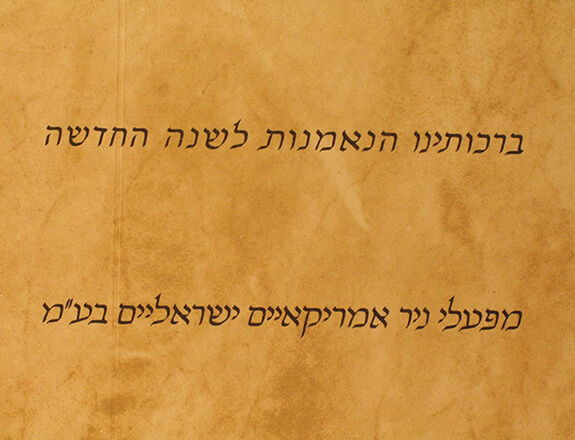 ברכותינו הנאמנות לשנה החדשה
מפעלי ניר אמריקאיים ישראליים בע"מ